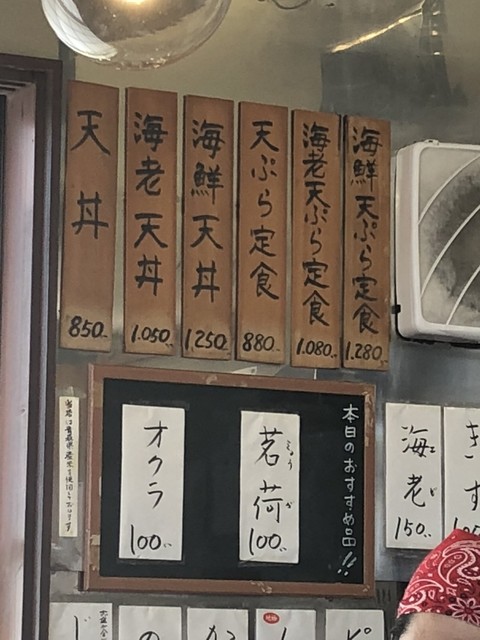 海鮮天ぷら定食 1.280
海老天ぷら定食 1.080
天ぷら定食 880
海鮮天丼 1.250
海老天丼 1.050
天丼 850
本日のおすすめ品!!
茗荷 100
みょうが
オクラ 100
海老 150
えび
きす